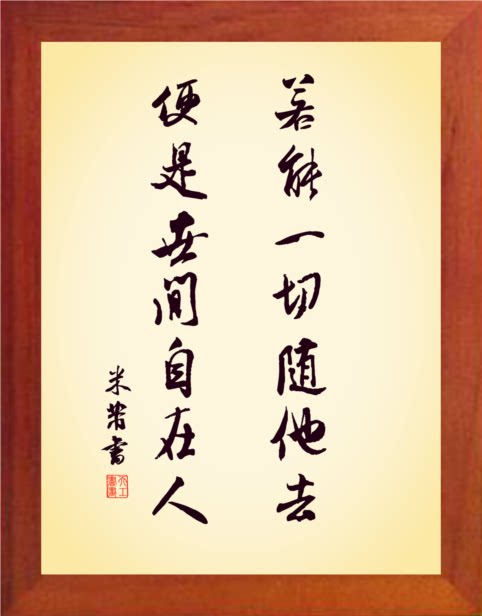 若能一切随他去
便是世間自在人
米芾書